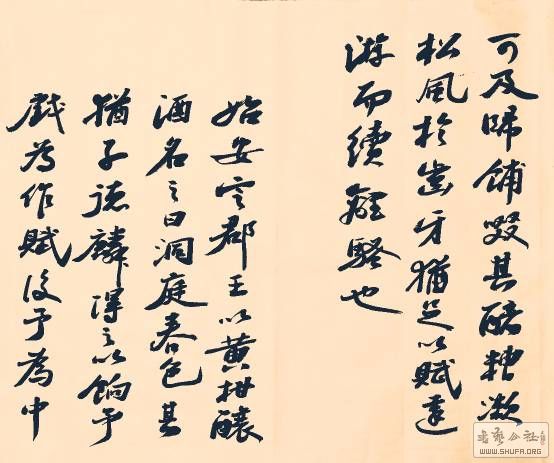 可及歸餔啜其醨糟漱
松風於齒牙猶足以賦遠
游而續離騷也
始安定郡王以黃柑釀
酒名之曰洞庭春色其
猶子德麟得之以餉予
戲為作賦後予為中
书艺公社
WWW.SHUFA.ORG